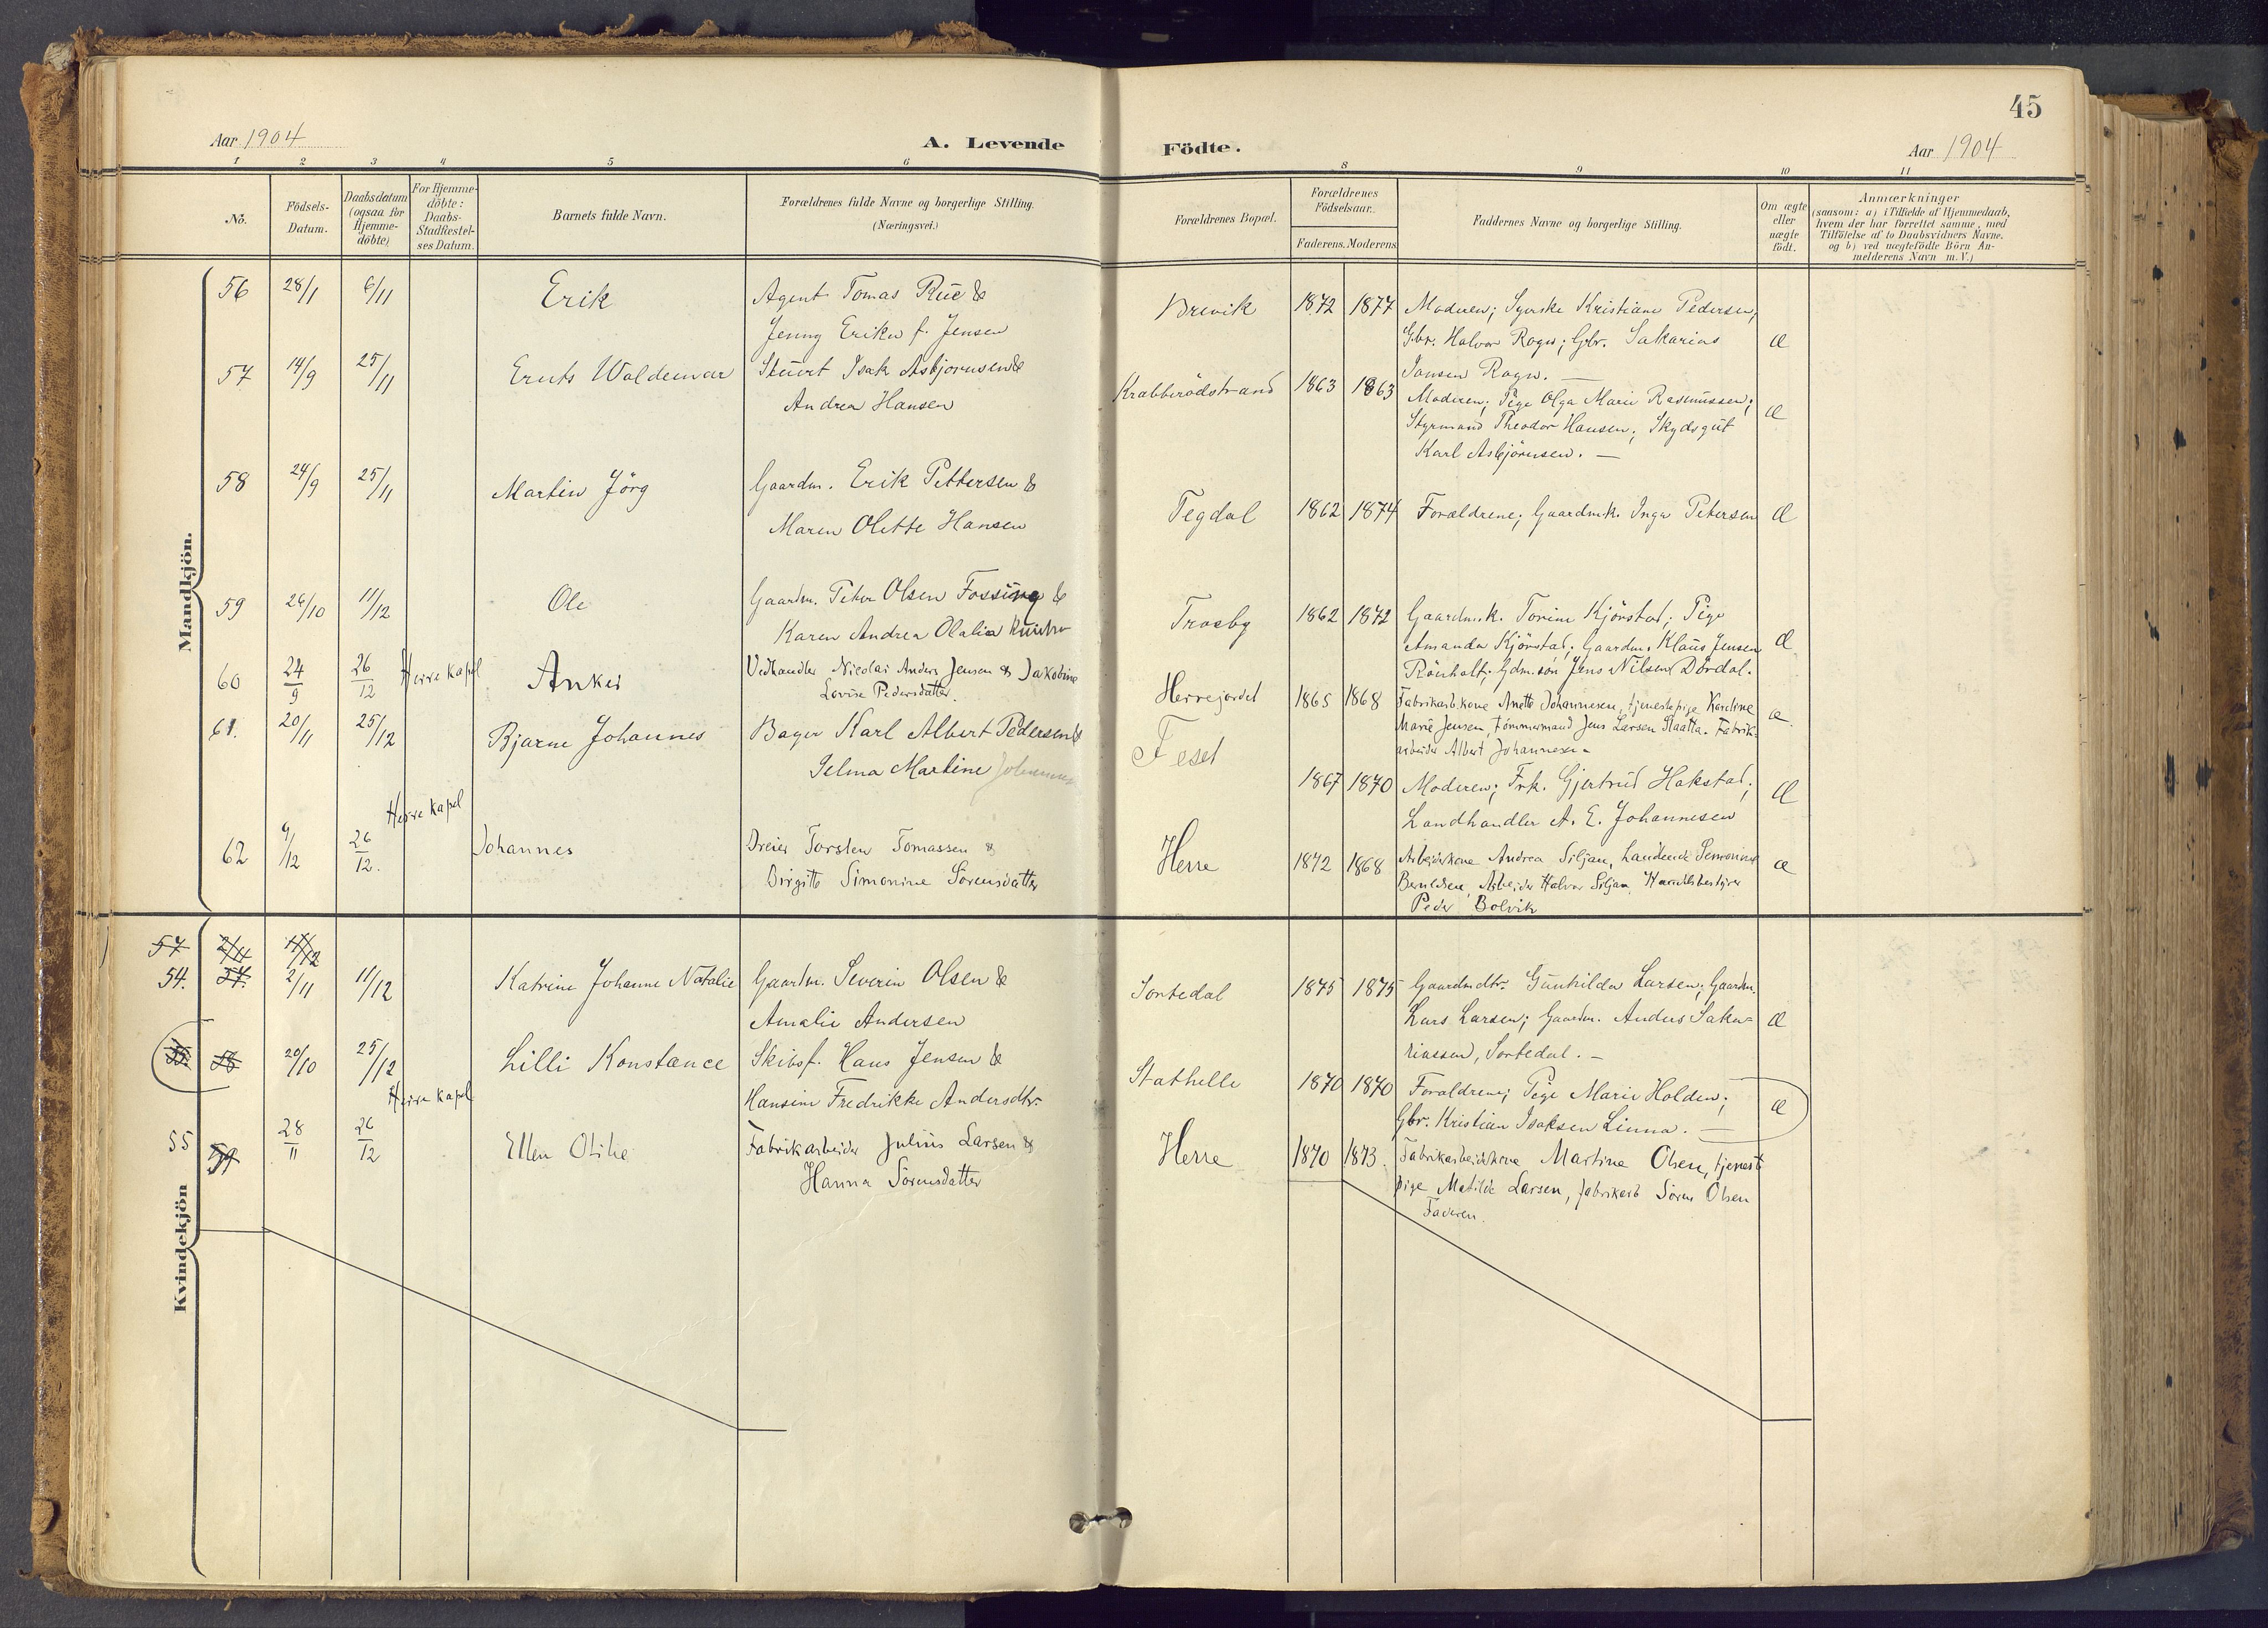 45
Aar 1904
A. Levende
Födte.
Aar 1904
1 2 3 4 5 6 8 9 10 11
No.
Födsels-Datum.
Daabsdatum (ogsaa for Hjemme-döbte)
For Hjemme-döbte: Daabs-Stadfæstel-ses Datum.
Barnets fulde Navn.
Forældrenes fulde Navne og borgerlige Stilling.
(Næringsvei.)
Forældrenes Bopæl.
Forældrenes Födselsaar.
Faderens. Moderens
Faddernes Navne og borgerlige Stilling.
Om ægte eller uægte födt.
Anmærkninger
(saasom: a) i Tilfælde af Hjemmedaab,
hvem der har forrettet samme, med
Tilföielse af to Daabsvidners Navne.
og b) ved uægtefödte Börn An-
melderens Navn m. V.)
Mandkjön.
56 28/1 6/11 Erik Agent Tomas Rue &
Jenny Erika f. Jensen
Brevik 1872 1877 Moderen; Syerske Kristiane Pedersen,
Gbr. Halvor Rogn; Gbr. Sakarias
Jansen Rogn. —
æ
57 14/9 25/11 Ernts Waldemar Stuert Isak Asbjørnsen &
Andrea Hansen
Krabberødstrand 1863 1863 Moderen; Pige Olga Marie Rasmussen;
Styrmand Theodor Hansen; Skydsgut
Karl Asbjørnsen. —
æ
58 24/9 25/11 Martin Jörg Gaardm. Erik Pettersen &
Maren Olette Hansen
Tegdal 1862 1874 Forældrene; Gaardmk. Inga Petersen æ
59 26/10 11/12 Ole Gaardm. Peter Olsen Fossing &
Karen Andrea Olalia
Trosby 1862 1872 Gaardmk. Torine Kjörstad; Pige
Amanda Kjörstad; Gaardm. Klaus Jensen
Rönholt; Gdm.sön Jens Nilsen Dördal.
æ
60 24/9 26/12 Herre kapel Anker Vedhandler Nicolai Anders Jensen & Jakobine
Lovise Pedersdatter.
Herrejordet 1865 1868 Fabrikarbkone Anette Johannesen, tjenestepige Karoline
Marie Jensen, Tömmermand Jens Larsen Slaatta. Fabrik-
arbeider Albert Johannesen
æ
61. 20/11 25/12 Bjarne Johannes Bager Karl Albert Pedersen &
Selma Martine
Feset 1867 1870 Moderen; Frk. Gjertrud Hakstad;
Landhandler A. E. Johannesen
æ
Herre kapel
62 9/12 26/12. Johannes Dreier Torsten Tomassen &
Birgitte Simonine Sörensdatter
Herre 1872 1868 Arbeiderkone Andrea Siljan,
Arbeider Halvor Siljan, Handelsbestyrer
Peder Bolvik
æ
Kvindekjön
57 2/11 11/12
54. 57. 2/11 11/12 Katrine Johanne Natalie Gaardm. Severin Olsen &
Amalie Andersen
Sortedal 1875 1875 Gaardmdtr. Gunhilda Larsen; Gaardm.
Lars Larsen; Gaardm. Anders Saka-
riassen, Sortedal. —
æ
58 20/10 25/12 Lilli Konstance Skibsf. Hans Jensen &
Hansine Fredrikke Andersdtr.
Stathelle 1870 1870 Forældrene; Pige Marie Holden;
Gbr. Kristian Isaksen Linna. —
æ
Herre kapel
55 59 28/11 26/12 Ellen Otilie Fabrikarbeider Julius Larsen &
Hanna Sörensdatter
Herre 1870 1873. Fabrikarbeiderkone Martine Olsen, tjeneste
pige Matilde Larsen, fabrikarb Sören Olsen
Faderen.